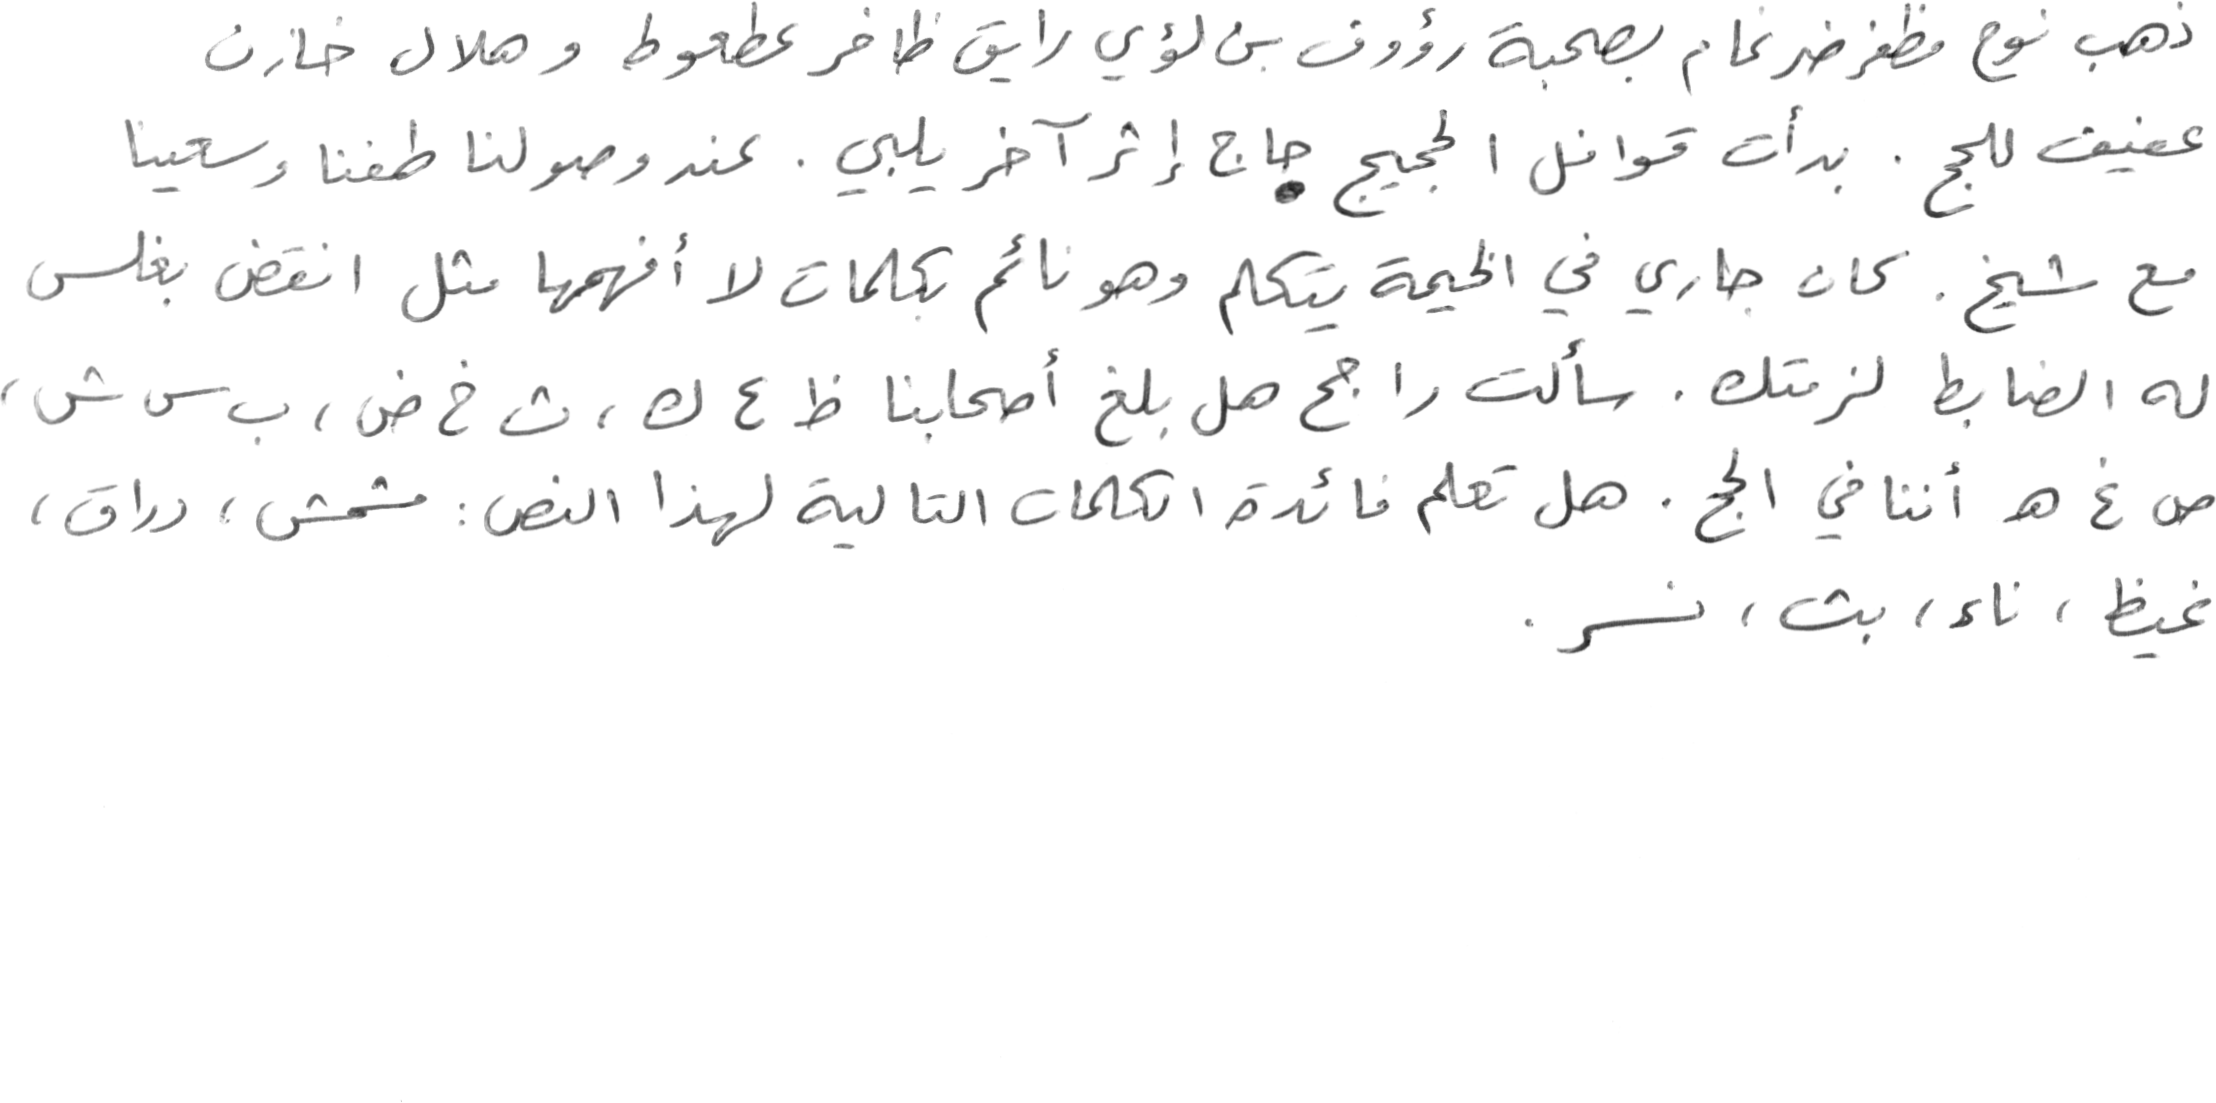 ذهب نوح مظفر ضرغام بصحبة رؤوف بن لؤي رايق ظافر عطعوط و هلال خازن
عفيف للحج . بدأت قوافل الحجيج حاج إثر آخر يلبي . عند وصولنا طفنا وسعينا
مع شيخ . كان جاري في الخيمة يتكلم وهو نائم بكلمات لا أفهمها مثل انقض بغلس
له الضابط لزمتك . سألت راجح هل بلغ أصحابنا ظ ع ك ، ث خ ض ، ب س ش ،
ص غ ه أننا في الحج . هل تعلم فائدة الكلمات التالية لهذا النص : مشمش ، دراق ،
غيظ ، ناء ، بث ، نسر .